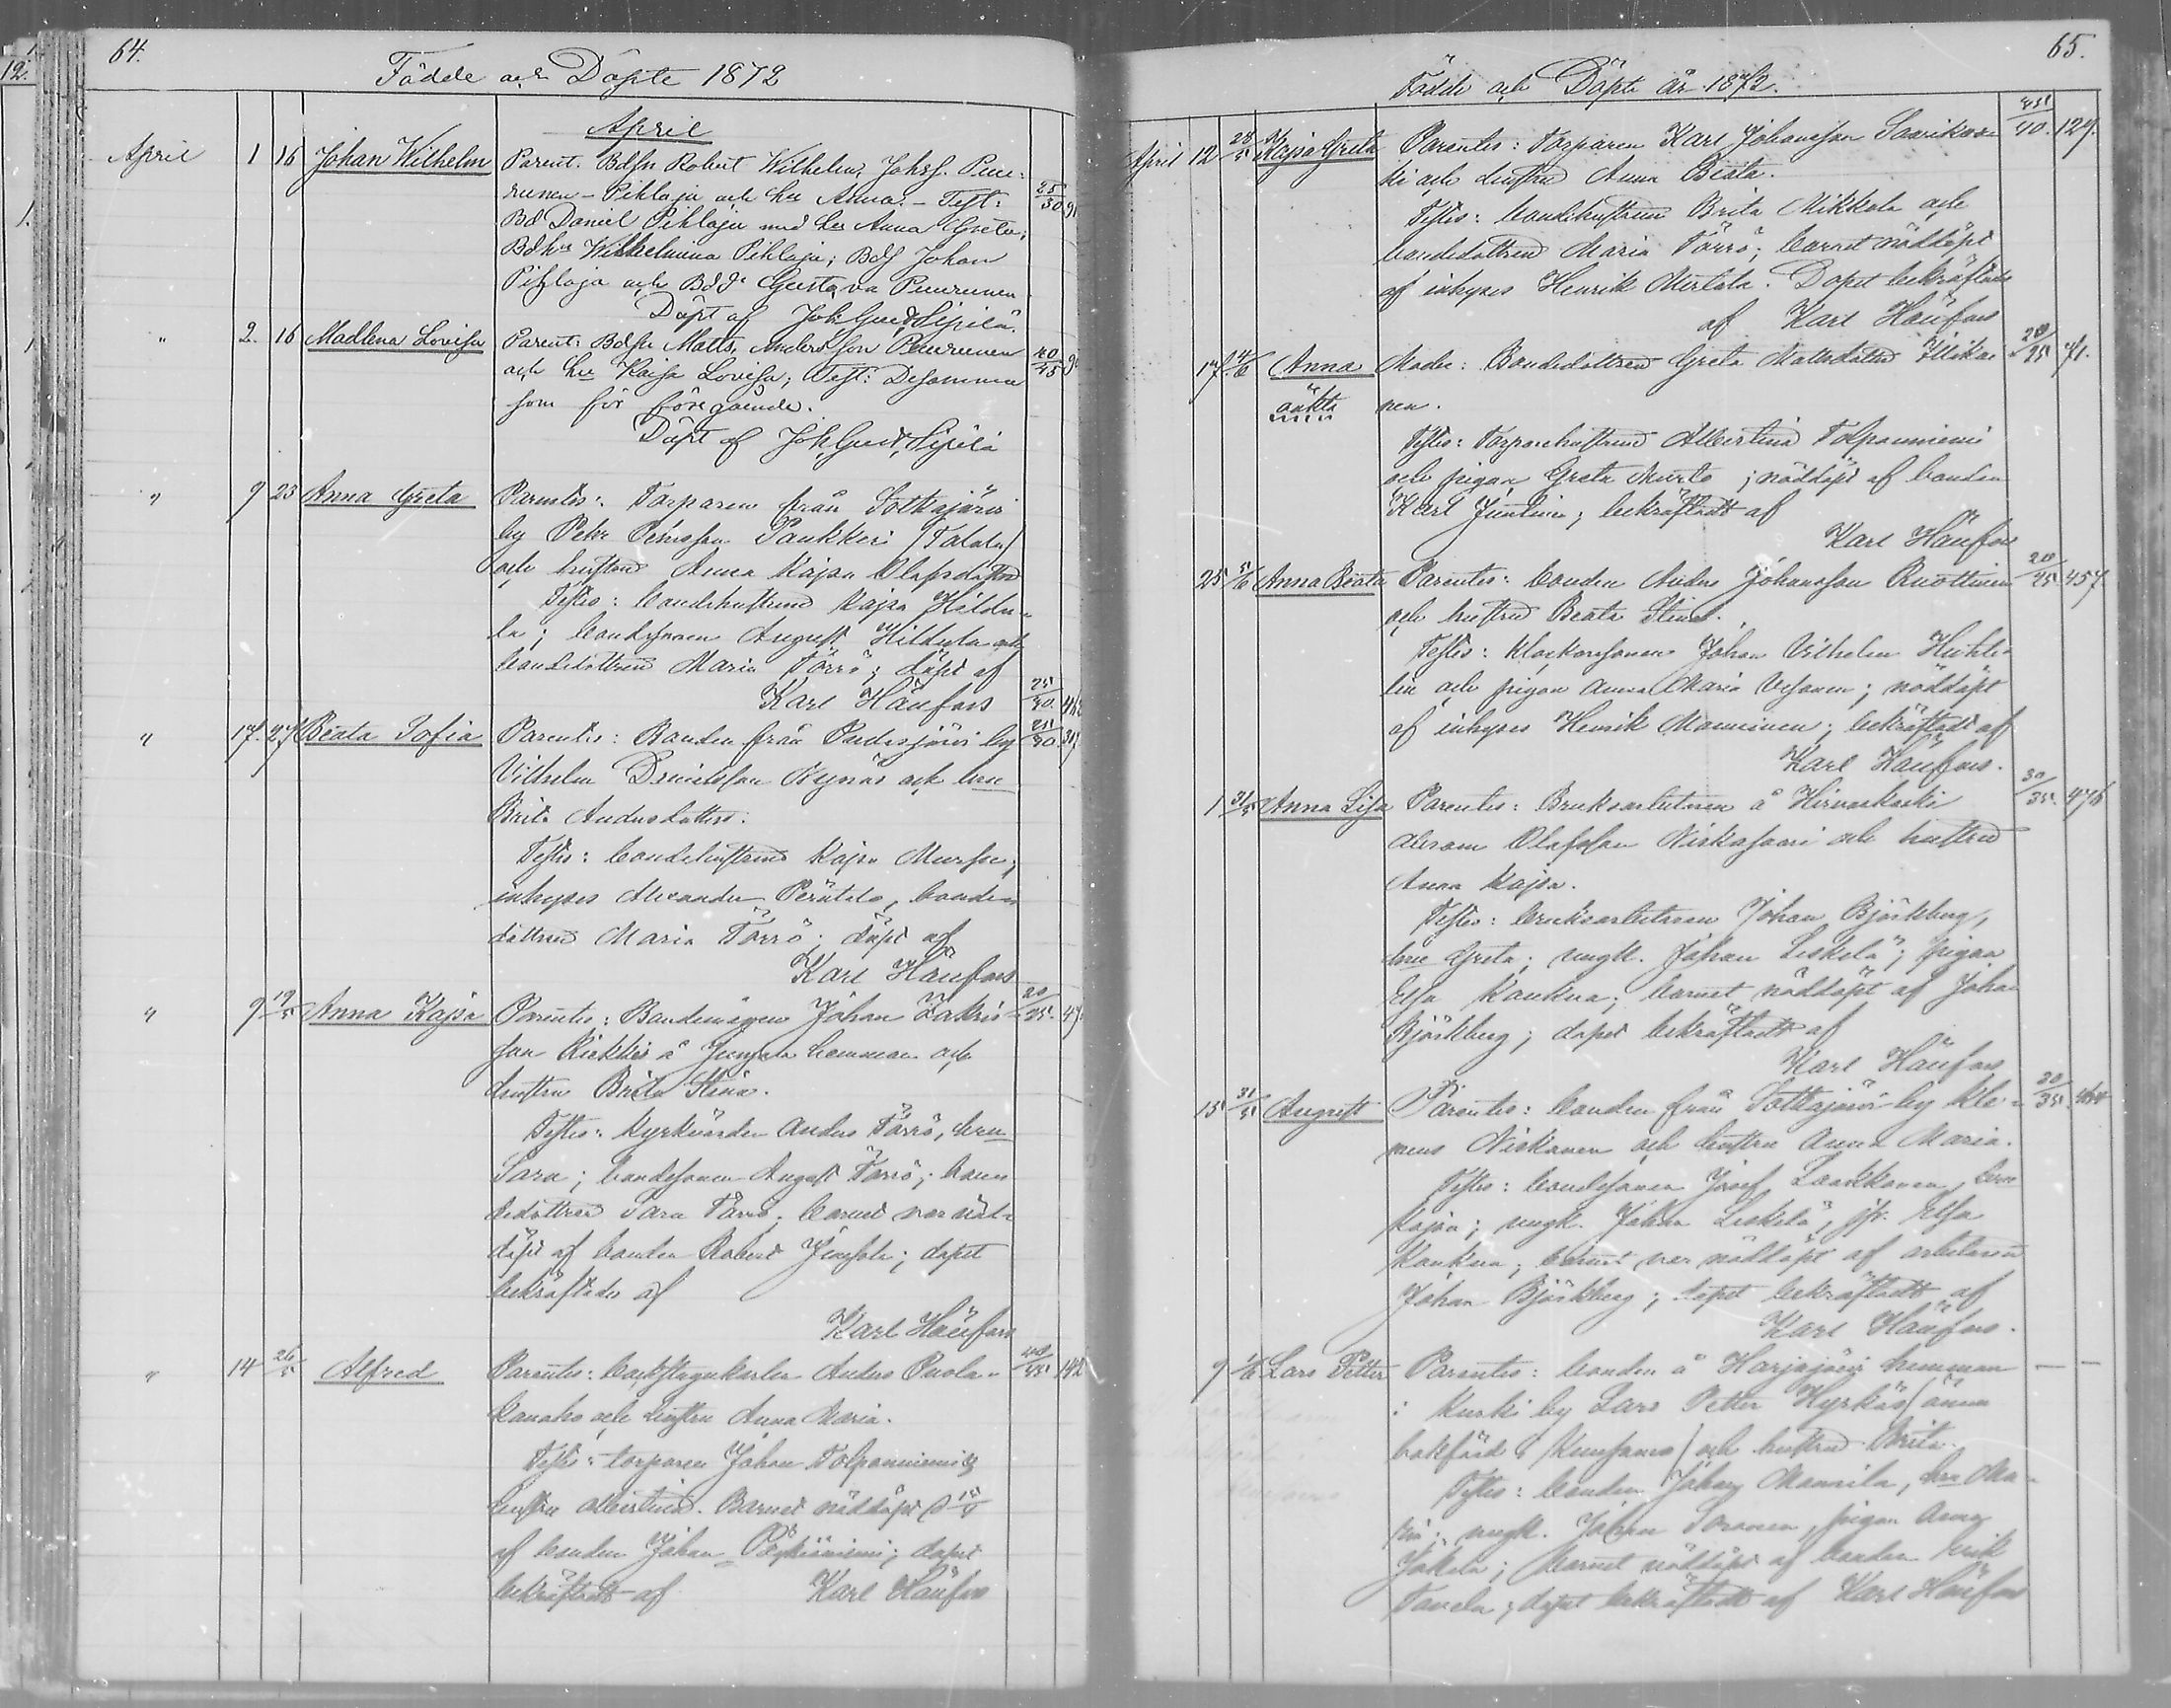 64.
Födde och Döpte 1872
April
April 1 16 Johan Wilhelm Parent. Bdsn Robert Wilhelm Johsf. Puu-
runen - Pihlaja och hu Anna. - Test: 25/30
Bd Daniel Pihlaja med hu Anna Greta;
Bdhu Wilhelmina Pihlaja; Bds Johan
Pihlaja och Bdd Gustava Puurunen
Döpt af Joh Gust Sipilä.
" 2. 16 Madlena Lovisa Parent: Bdsn Matts Andersson Puurunen 40/45
och hu Kaisa Lovisa; Test: Desamma
som för föregående.
Döpt af Joh. Gust. Sipilä
" 9 23 Anna Greta Parentes: Torparen från Sotkajärvi
by Petter Petersson Paukkeri /Talala/
och hustrun Anna Kajsa Olafsdotter
Testes: bondehustrun Kajsa Hildu-
la; bondesonen August Hildula och
bondedottren Maria Törrö; döpt af
Karl Häufors 25/30
" 17. 27 Beata Sofia Parentes: Bonden från Pudasjärvi by 25/30
Vilhelm Danielsson Nynäs och hu
Brita Andersdotter.
Testes: bondehustrun Kajsa Mursu;
inhyses Alexander Perätalo, bonde-
dottren Maria Törrö; döpt af
Karl Häufors
" 9 19/5 Anna Kajsa Parentes: Bondemågen Johan Zakris- 20/25. 47.
son Riekki å Jungala hemman och
hustru Brita Stina.
Testes: Kyrkvärden Anders Törrö, hu
Sara; bondesonen August Törrö; bon-
dedottren Sara Törrö. barnet var nöd-
döpt af bonden Robert; dopet
bekräftades af
Karl Häufors
" 14 26/5 Alfred Parentes: backstugukarlen Anders Puola- 40/45 142
kanaho och hustru Anna Maria.
Testes: torparen Johan Tolpanniemi
hustru Albertina. Barnet nöddöpt
af bonden Johan; dopet
bekräftadt af Karl Häufors
65.
Födde och Döpte år 1872.
April 12 28/5 Kajsa Greta Parentes: Torparen Karl Johansson Saarikos- 35/40. 127.
ki och hustru Anna Beata.
Testes: bondehustrun Brita Mikkola och
bondedottren Maria Törrö; barnet nöddöpt
af inhyses Henrik Mertala. Dopet bekräftades
af Karl Häufors
17 4/6 Anna Moder: Bondedottren Greta Mattsdotter Illikai- 20/25 71.
oäkta nen.
Testes: Torparehustrun Albertina Tolpanniemi
och pigan Greta Murto; nöddöpt af bonden
Karl Juntinen; bekräftadt af
Karl Häufors
25 5/6 Anna Beata Parentes: bonden Anders Johansson Ruottinen 20/25 457
och hustru Beata Stina.
Testes: Klockaresonen Johan Vilhelm Huhta-
lin och pigan Anna Maria Vesanen; nöddöpt
af inhyses Henrik Manninen; bekräftadt af
Karl Häufors.
1 31/5 Anna Lisa Parentes: Bruksarbetaren å Hirvaskoski 30/35. 476
Abram Olafsson Niskasaari och hustru
Anna Kajsa.
Testes: bruksarbetaren Johan Björkberg,
hu Greta; ungk. Johan Leskelä; pigan
Elsa Kaukua; barnet nöddöpt af Johan
Björkberg; dopet bekräftadt af
Karl Häufors
15 31/5 August Parentes: bonden från Sotkajärvi by Kle- 30/35.
mens Niskanen och hustru Anna Maria.
Testes: bondesonen Josef Laakkonen, hu
Kajsa; ungk. Johan Leskelä; pig. Elsa
Kaukua; barnet var nöddöpt af arbetaren
Johan Björkberg; dopet bekräftadt af
Karl Häufors.
9 1/6 Lars Petter Parentes: bonden å Harjajärvi hemman — —
i Kurki by Lars Petter Hyrkäs / ännu
bokförd i Kuusamo / och hustru Brita.
Testes: bonden Johan Mannila, hu Ma-
ria; ungk. Johan Soronen, pigan Anna
Jokela; barnet nöddöpt af bonden Erik
Tauela; dopet bekräftadt af Karl Häufors